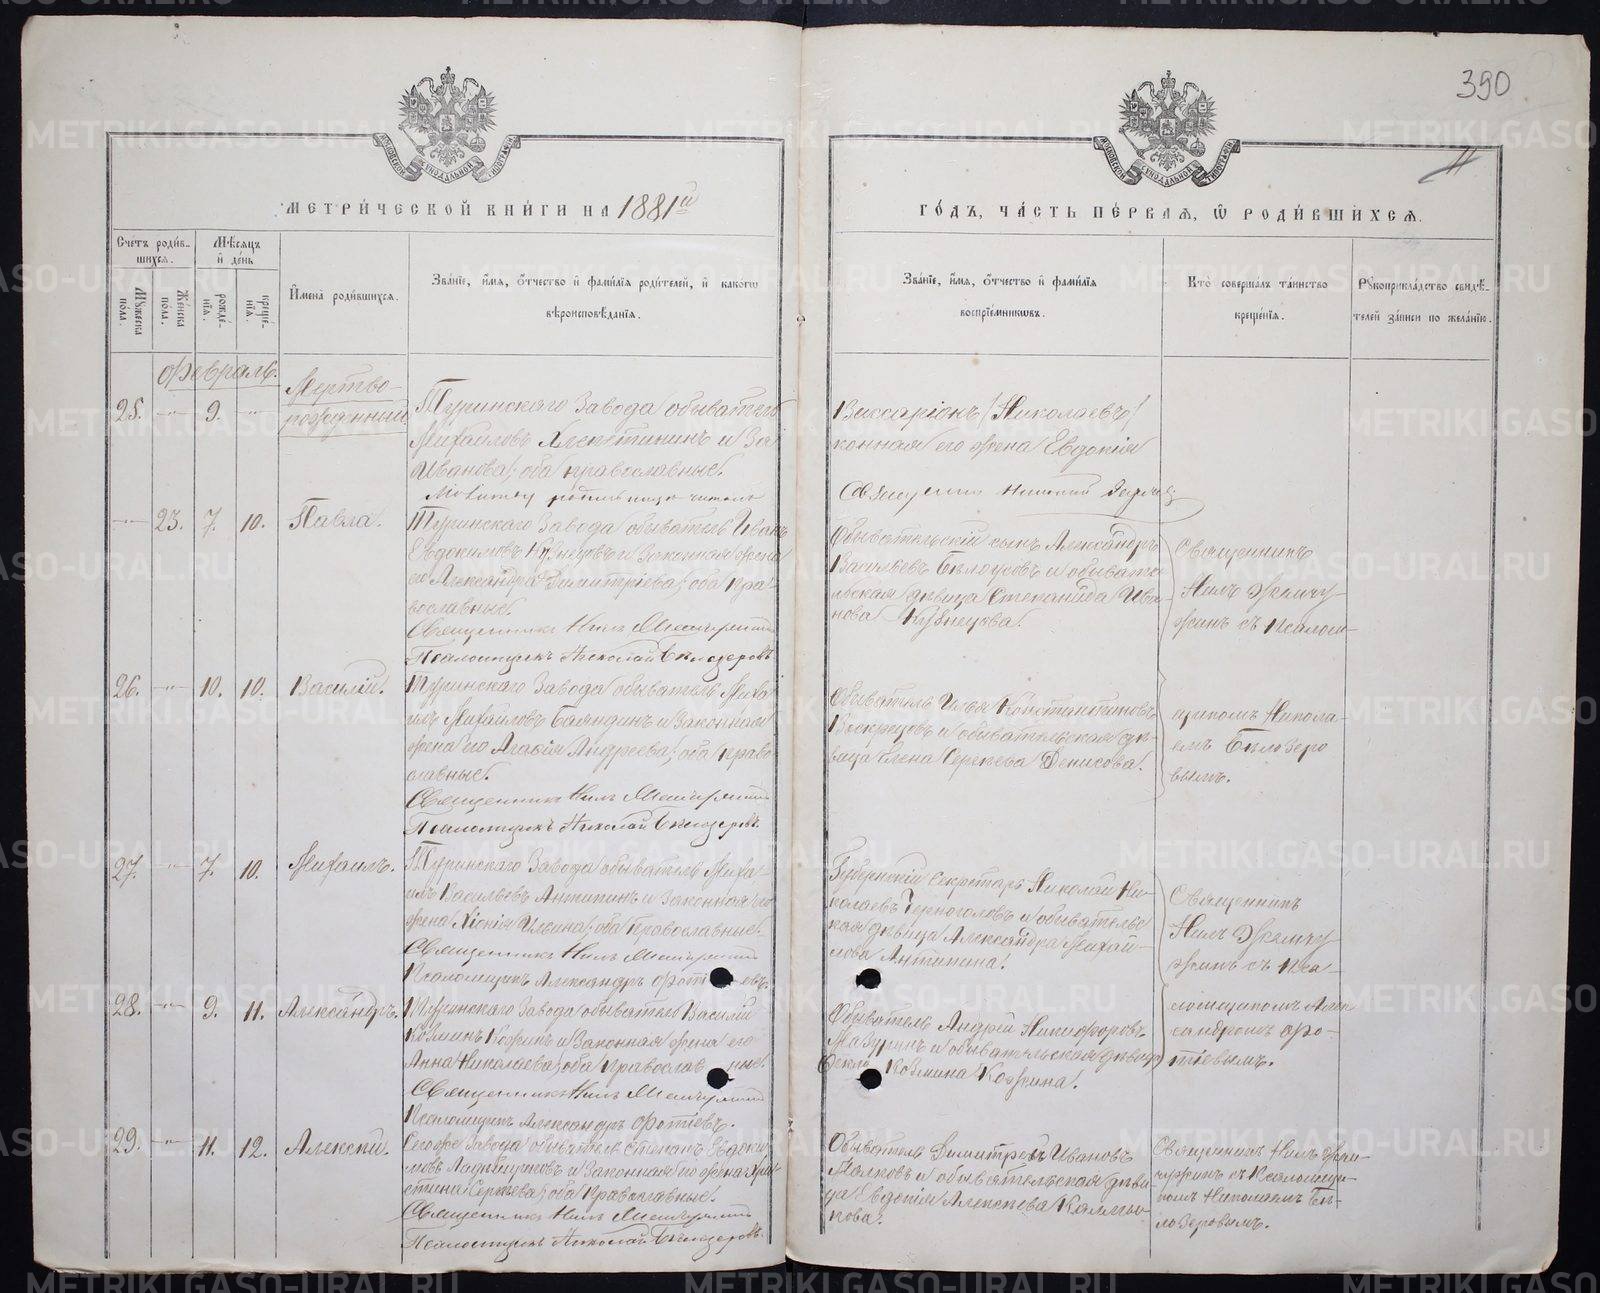 390
11
МЕТРИЧЕСКОЙ КНИГИ НА 1881й
ГОДЪ, ЧАСТЬ ПЕРВАЯ, Ѡ РОДИВШИХСЯ.
Счетъ родив-
шихся.
Мѣсяцъ
и день
Мꙋжеска пола.
Женска пола.
рожде-
нія.
креще-
нія.
Имена родившихся.
Званіе, имя, отчество и фамилія родителей, и какогѡ
вѣроисповѣданія.
Званіе, имя, отчество и фамилія
воспріемникѡвъ.
Кто совершалъ таинство
крещенія.
Рꙋкоприкладство свидѣ-
телей записи по желанію.
Февраль.
25. -"- 9. -"-
Мертво-
рожденный
Туринскаго Завода обыватель
Виссаріонъ /Николаевъ/
Михаиловъ и За
конная его жена Евдокія
Иванова, оба православные.
Молитву родильнице читалъ
Священникъ
-"- 23. 7. 10. Павла.
Туринскаго Завода обыватель Иванъ
Евдокимовъ Кузнецовъ и Законная жена
его Александра Димитріева, оба пра-
вославные.
Священникъ Нилъ
Псаломщикъ Николай Бѣлозеровъ
Обывательскій сынъ Александръ
Васильевъ Бѣлоусовъ и обыватe
льская дѣвица Степанида Ива-
нова Кузнецова.
Священникъ
Нилъ Жемчу-
жинъ съ Псалом-
щикомъ Никола-
емъ Бѣлозеро
вымъ.
26. -"- 10. 10. Василій.
Туринскаго Завода обыватель Миха
илъ Михаиловъ и Законная
жена его Агафія Андреева, оба право-
славные.
Священникъ Нилъ
Псаломщикъ Николай Бѣлозеровъ.
Обыватель Илья Константиновъ
Воскрецовъ и обывательская дѣ-
вица Елена Сергѣева Денисова.
27. -"- 7. 10. Михаилъ.
Туринскаго Завода обыватель Миха-
илъ Васильевъ Антипинъ и Законная его
жена Хіонія Ильина, оба Православные.
Священникъ Нилъ
Псаломщикъ Александръ Фот евъ.
Губернскій Секретарь Николай Ни-
колаевъ Черноголовъ и обыватель
кая дѣвица Александра Михай-
лова Антипина.
Священникъ
Нилъ Жемчу-
жинъ съ Пса-
ломщикомъ Алек
сандромъ Фо-
тіевымъ.
28. -"- 9. 11. Александръ.
Туринскаго Завода обыватель Василій
Козминъ Кожинъ и Законная жена его
Анна Николаева, оба Православ ные.
Священникъ Нилъ
Псаломщикъ Александръ Фотіевъ.
Обыватель Андрей Никифоровъ
Мазуринъ и обывательская дѣвица
Фекла Козмина Кожина.
29. -"- 11. 12. Алексѣй.
Сегоже Завода обыватель Степанъ Евдоки-
мовъ и Законная его жена Хри-
стина Сергѣева, оба Православные.
Священникъ Нилъ
Псаломщикъ Николай Бѣлозеровъ.
Обыватель Димитрей Ивановъ
Малковъ и обывательская дѣви-
ца Евдокія Алексѣева Калмы-
кова.
Священникъ Нилъ Жем-
чужинъ съ Псаломщи-
комъ Николаемъ Бѣ-
лозеровымъ.
METRIKI.GASO-URAL.RU